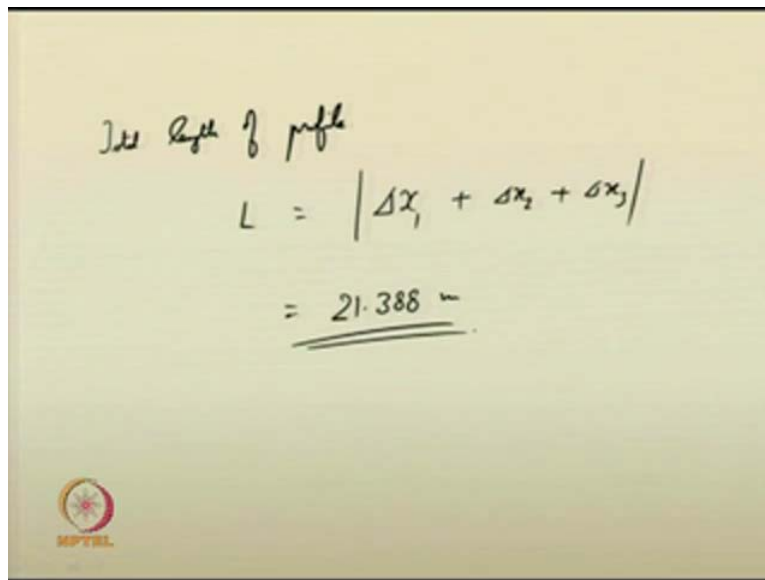 Total length of profile
L = |Δx₁ + Δx₂ + Δx₃|
= 21.388 m
NPTEL